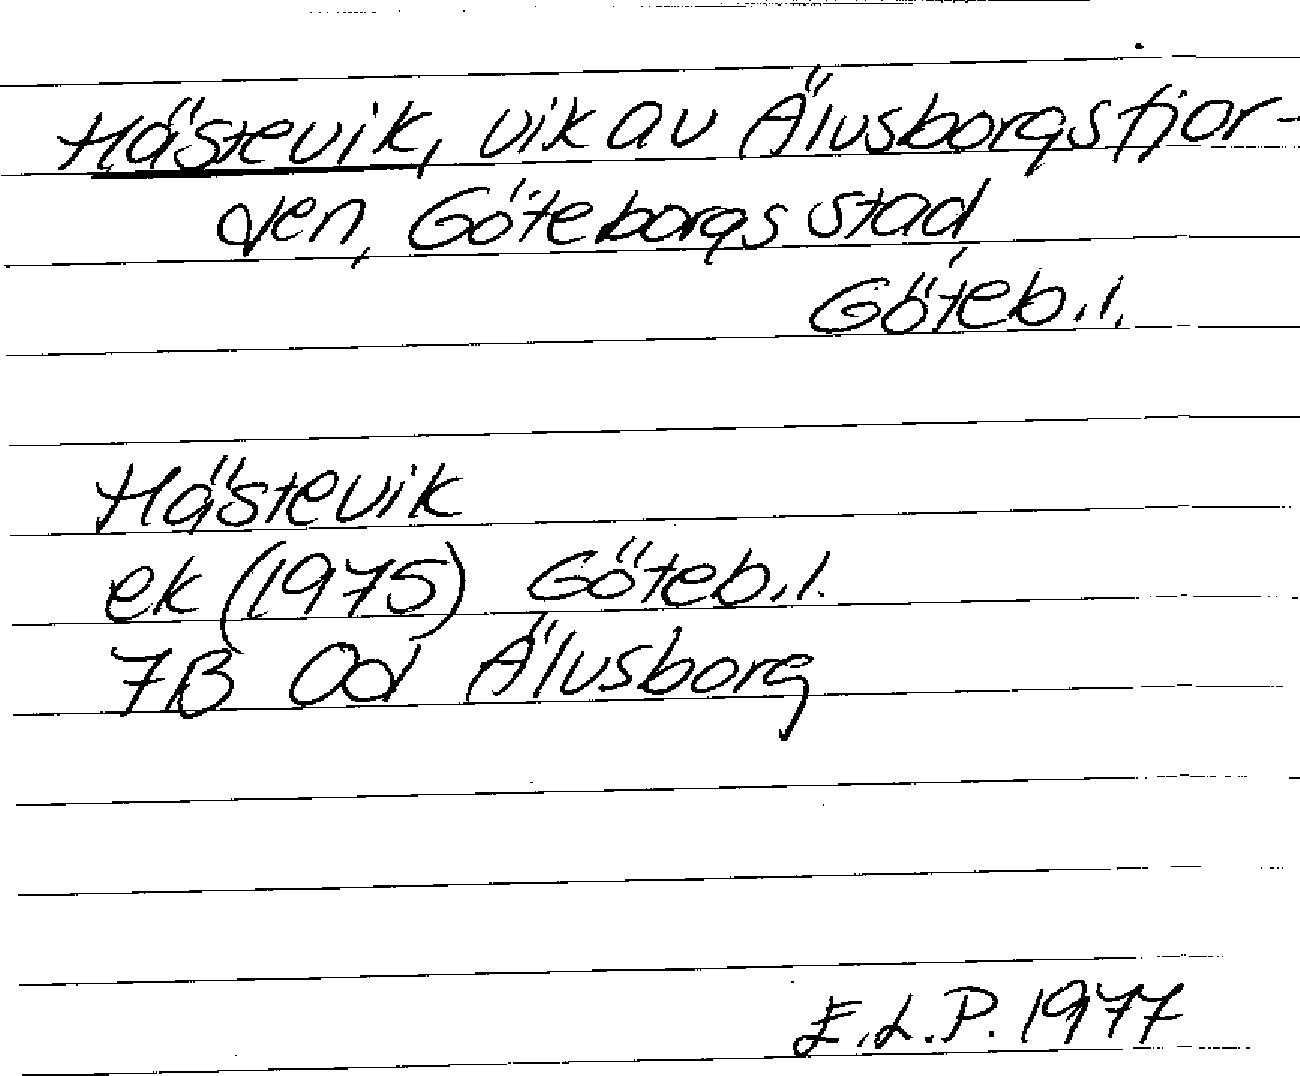 Hästevik, vik av Älvsborgsfjor-
den, Göteborgs stad,
Göteb.l.
Hästevik
ek (1975) Göteb.l.
7B Od Älvsborg
E.L.P. 1977